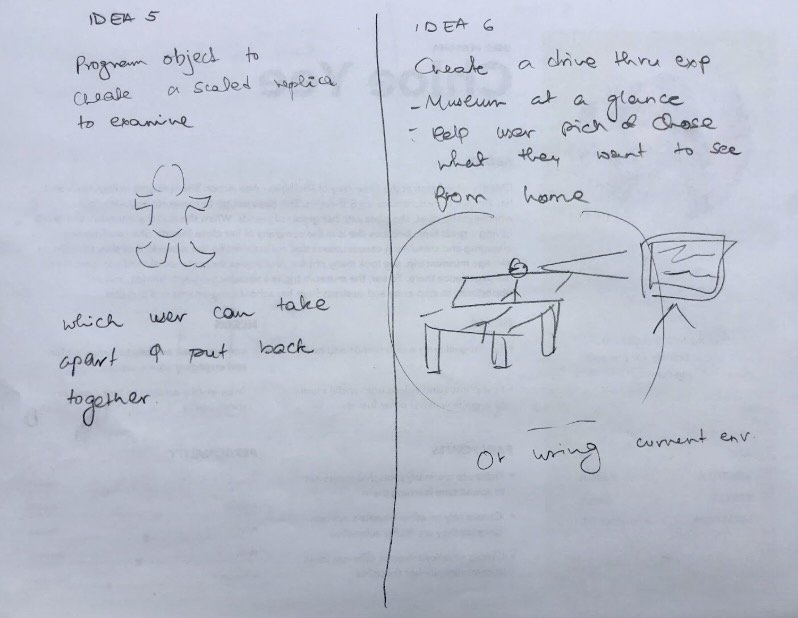 IDEA 5
Program object to
create a scaled replica
to examine
which user can take
apart & put back
together.
IDEA 6
Create a drive thru exp
- Museum at a glance
- Help user pick & chose
what they want to see
from home
Or using current env.